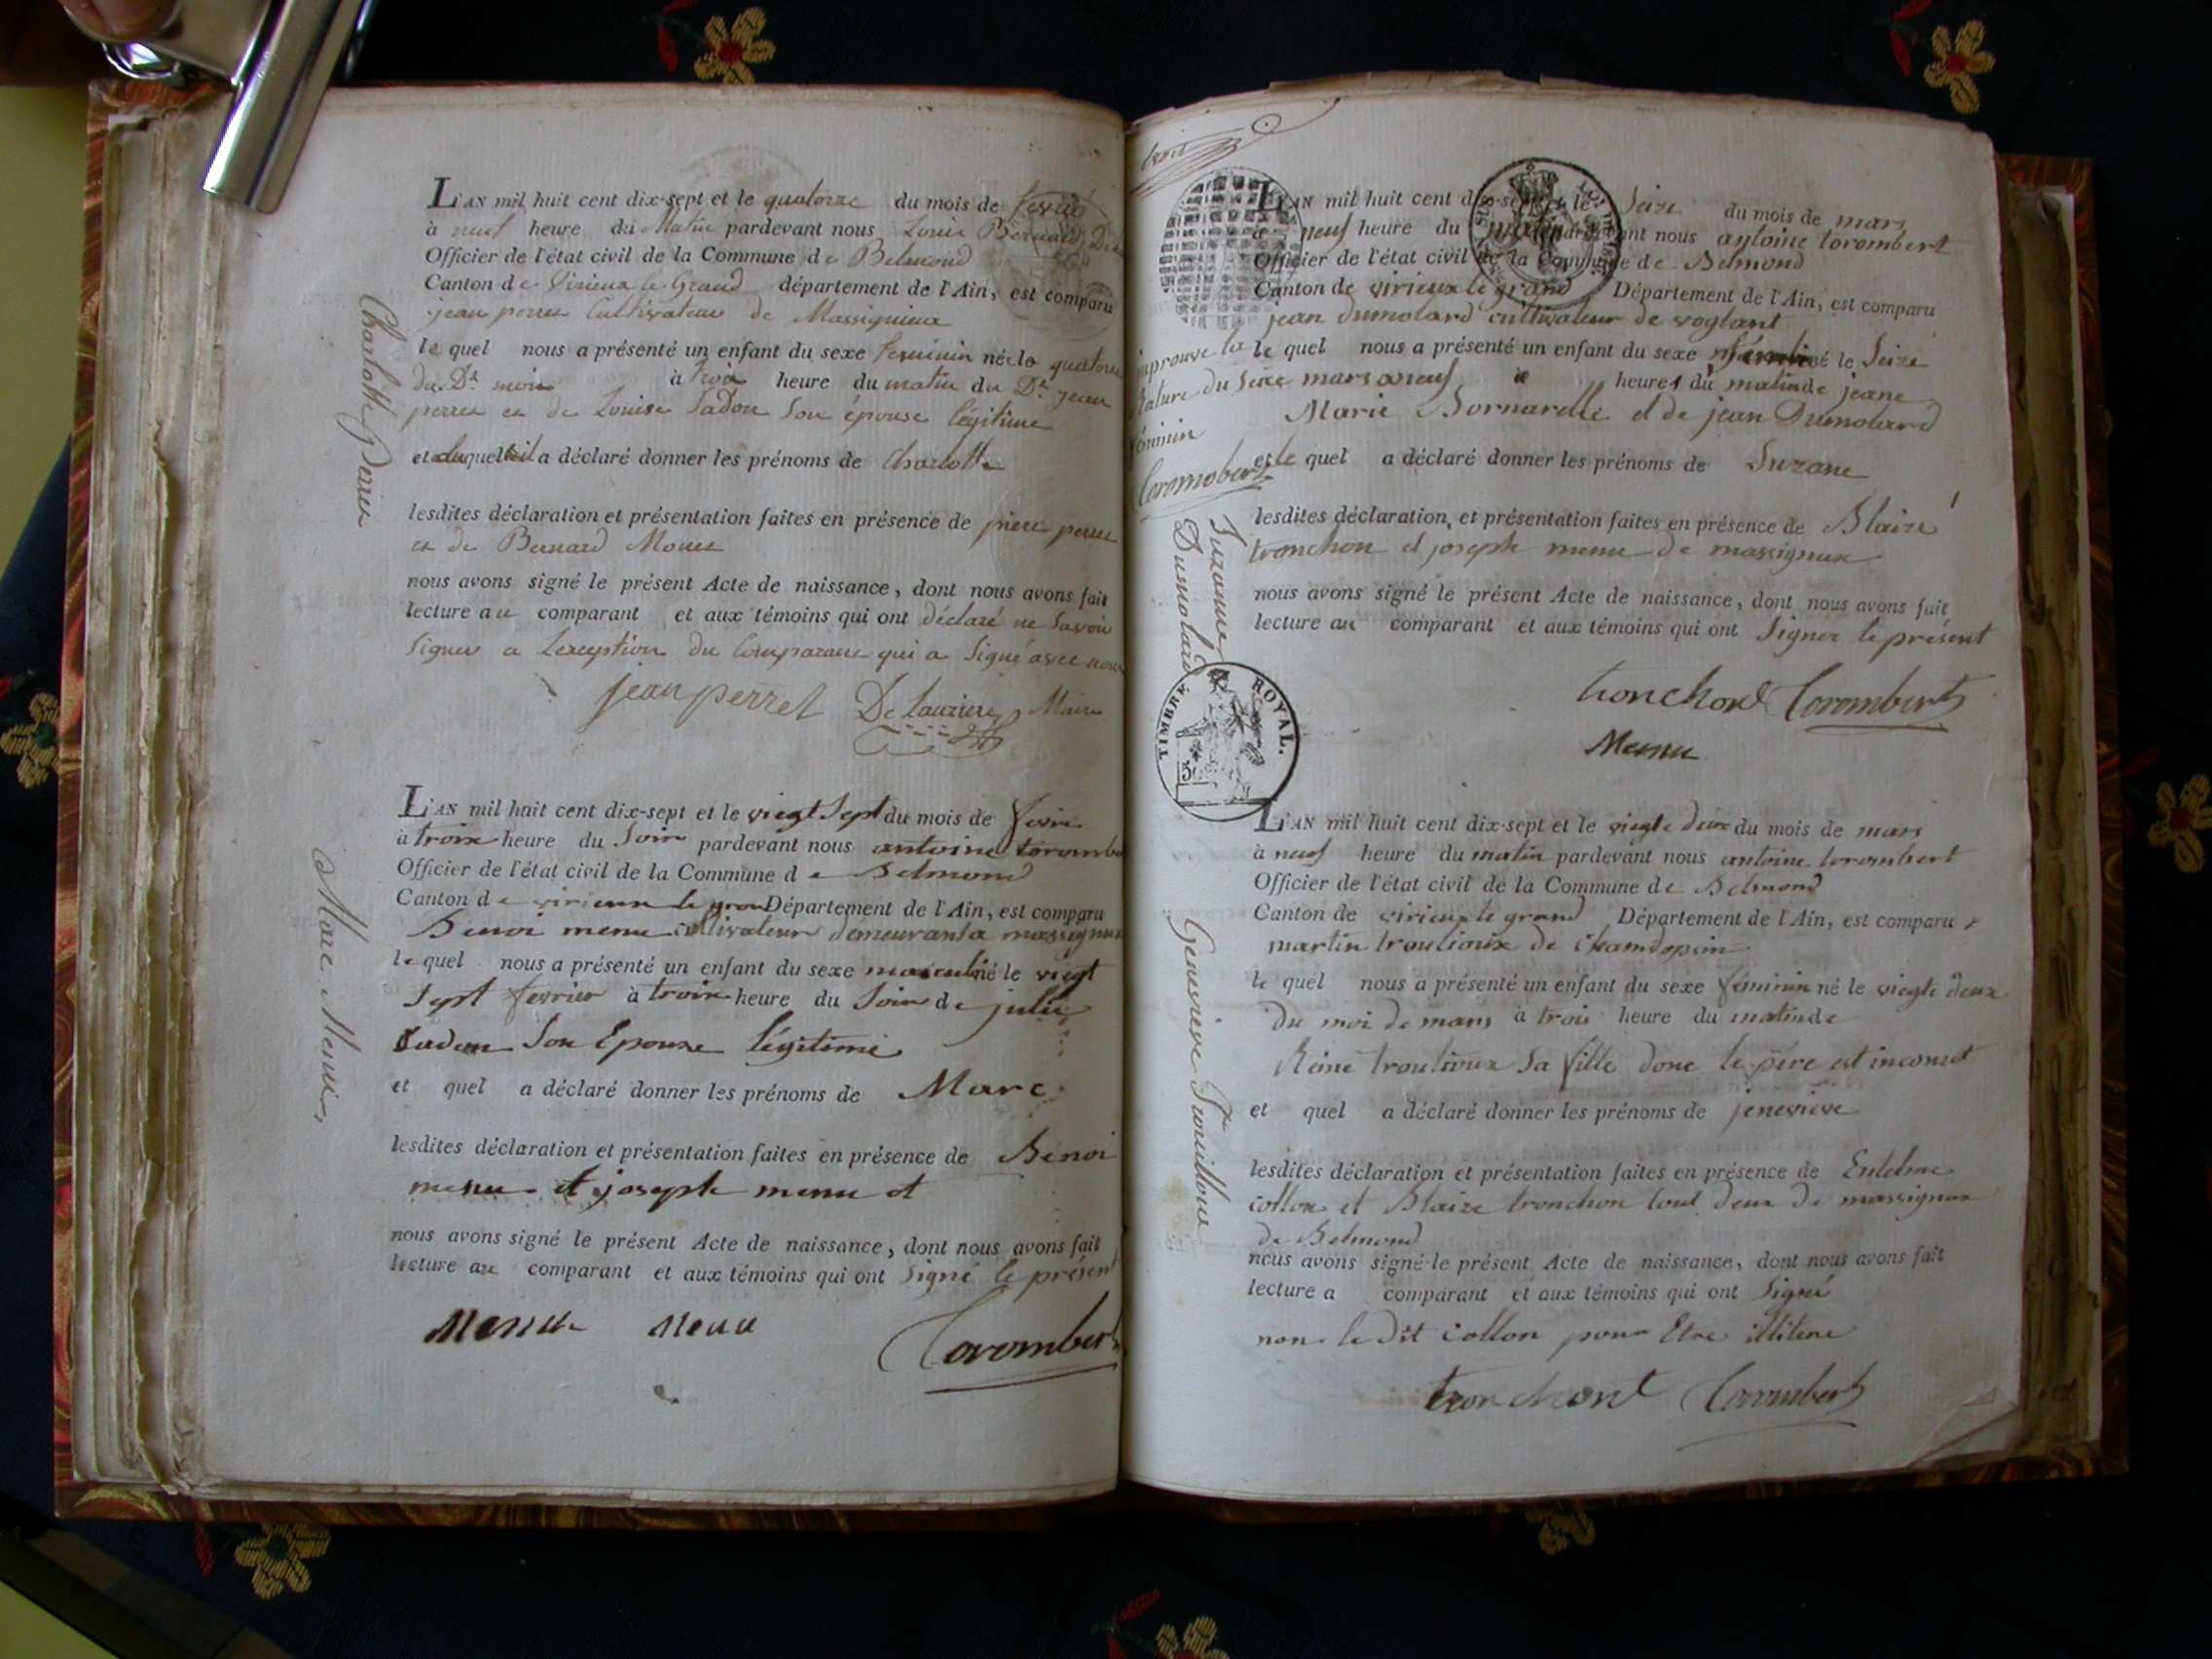 L'AN mil huit cent dix-sept et le quatorze du mois de fevrié
à neuf heure du Matin pardevant nous Louis Bernard De
Officier de l'état civil de la Commune de Belmond
Canton de Virieux le Grand département de l'Ain, est comparu
jean perret Cultivateur de Massignieux
le quel nous a présenté un enfant du sexe feminin née le quatorze
du Dt mois à trois heure du matin du Dt jean
perret et de Louise Sadon son épouse légitime
et auquel il a déclaré donner les prénoms de Charlotte
lesdites déclaration et présentation faites en présence de pierre perret
et de Bernard Monet
nous avons signé le présent Acte de naissance, dont nous avons fait
lecture au comparant et aux témoins qui ont déclaré ne savoir
signer a Lexception du Comparant qui a signé avec nous
jean perret Delauziere Maire
Charlotte Perret
L'AN mil huit cent dix-sept et le viegt sept du mois de fevrie
à troix heure du soir pardevant nous antoine torombe
Officier de l'état civil de la Commune de Belmond
Canton de virieux le gran Département de l'Ain, est comparu
Benoi menu cultivateur demeurant a massignux
le quel nous a présenté un enfant du sexe masculin né le viegt
sept fevrier à troix heure du soir de julie
sadon son Epouse légitime
et quel a déclaré donner les prénoms de Marc
lesdites déclaration et présentation faites en présence de Benoi
menu et joseph menu et
nous avons signé le présent Acte de naissance, dont nous avons fait
lecture au comparant et aux témoins qui ont signé le présent
Menu Menu Torombert
Marc Menu
trois
L'AN mil huit cent dix-sept et le seize du mois de mars
à neuf heure du matin pardevant nous antoine torombert
Officier de l'état civil de la Commune de Belmond
Canton de virieux le grand Département de l'Ain, est comparu
jean dumolard cultivateur de voglant
le quel nous a présenté un enfant du sexe féminin né le Seize
du seize mars a neuf heures du matin de jeane
Marie Bornarelle et de jean Dumolard
et le quel a déclaré donner les prénoms de Suzane
lesdites déclaration et présentation faites en présence de Blaize
tronchon et joseph menu de massignux
nous avons signé le présent Acte de naissance, dont nous avons fait
lecture au comparant et aux témoins qui ont signer le présent
tronchont Torombert
Menu
aprouve la
Rature
féminin
Torombert
Suzanne
Dumolard
TIMBRE ROYAL.
L'AN mil huit cent dix-sept et le viegte deux du mois de mars
à neuf heure du matin pardevant nous antoine torombert
Officier de l'état civil de la Commune de Belmond
Canton de virieux le grand Département de l'Ain, est comparu
martin troulioux de
le quel nous a présenté un enfant du sexe féminin né le viegte deux
du moi de mars à trois heure du matin de
Reine troulioux sa fille donc le père est inconut
et quel a déclaré donner les prénoms de jenevieve
lesdites déclaration et présentation faites en présence de Entelme
collon et Blaize tronchon tout deux de massignux
de Belmond
nous avons signé le présent Acte de naissance, dont nous avons fait
lecture a comparant et aux témoins qui ont Signé
non le dit collon pour Etre illitere
tronchont Torombert
Genevieve Trouilloux